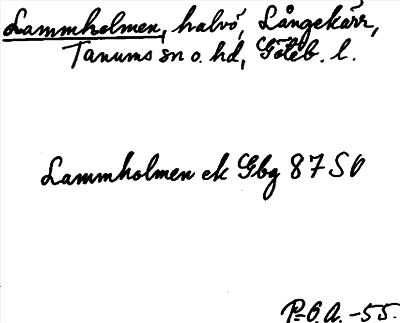 Lammholmen, halvö, Långekärr,
Tanums sn o. hd, Göteb. l.
Lammholmen ek Gbg 87 SO
P-O.A. -55.